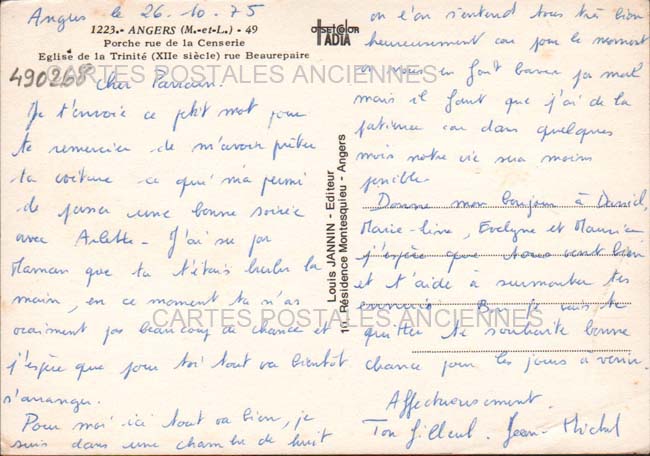 Angers le 26.10.75
1223.- ANGERS (M.-et-L.) - 49
Porche rue de la Censerie
Eglise de la Trinité (XIIe siècle) rue Beaurepaire
OFFSET COLOR
IADIA
490268
CARTES POSTALES ANCIENNES
Cher Parrain.
Je t'envoie ce petit mot pour
te remercier de m'avoir prêter
ta voiture ce qui m'a permi
de passer une bonne soirée
avec Arlette - J'ai su par
Maman que tu t'étais bruler la
main, en ce moment tu n'as
vraiment pas beaucoup de chance et
j'espère que pour toi tout va bientôt
s'arranger.
Pour moi ici tout va bien, je
suis dans une chambre de huit
Louis JANNIN - Editeur
10, Résidence Montesquieu - Angers
on l'on s'entend tous très bien
heureusement car pour le moment
on nous en fait baver pas mal
mais il faut que j'ai de la
patience car dans quelques
mois notre vie sera moins
pénible.
Donne mon bonjour à Daniel,
Marie-line, Evelyne et Maurice
j'espère que tous vont bien
et t'aide à surmonter tes
ennuis. Bon je vais te
quitter te souhaite bonne
chance pour les jours à venir.
CARTES POSTALES ANCIENNES
Affectueusement.
Ton filleul. Jean-Michel